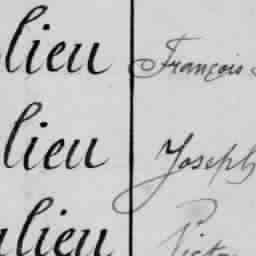 lieu François
lieu Joseph
lieu Victo